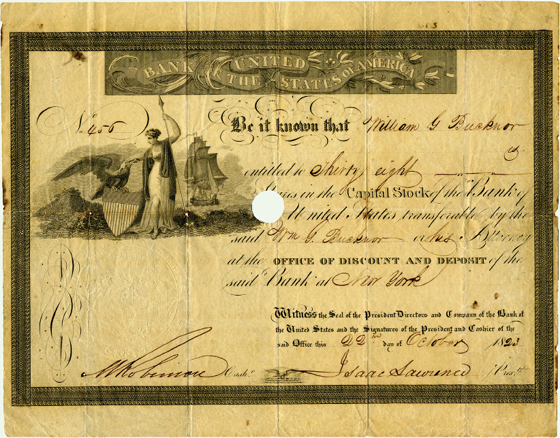 BANK OF THE UNITED STATES OF AMERICA
No. 456
Be it known that William G Bucknor
is
entitled to Thirty eight
Shares in the Capital Stock of the Bank of
the United States, transferable by the
said Wm G. Bucknor or his Attorney
at the OFFICE OF DISCOUNT AND DEPOSIT of the
said Bank at New York
Witness the Seal of the President Directors and Company of the Bank of
the United States and the Signatures of the President and Cashier of the
said Office this 22nd day of October 1823
M Robinson Cashr. Isaac Lawrence Presdt.